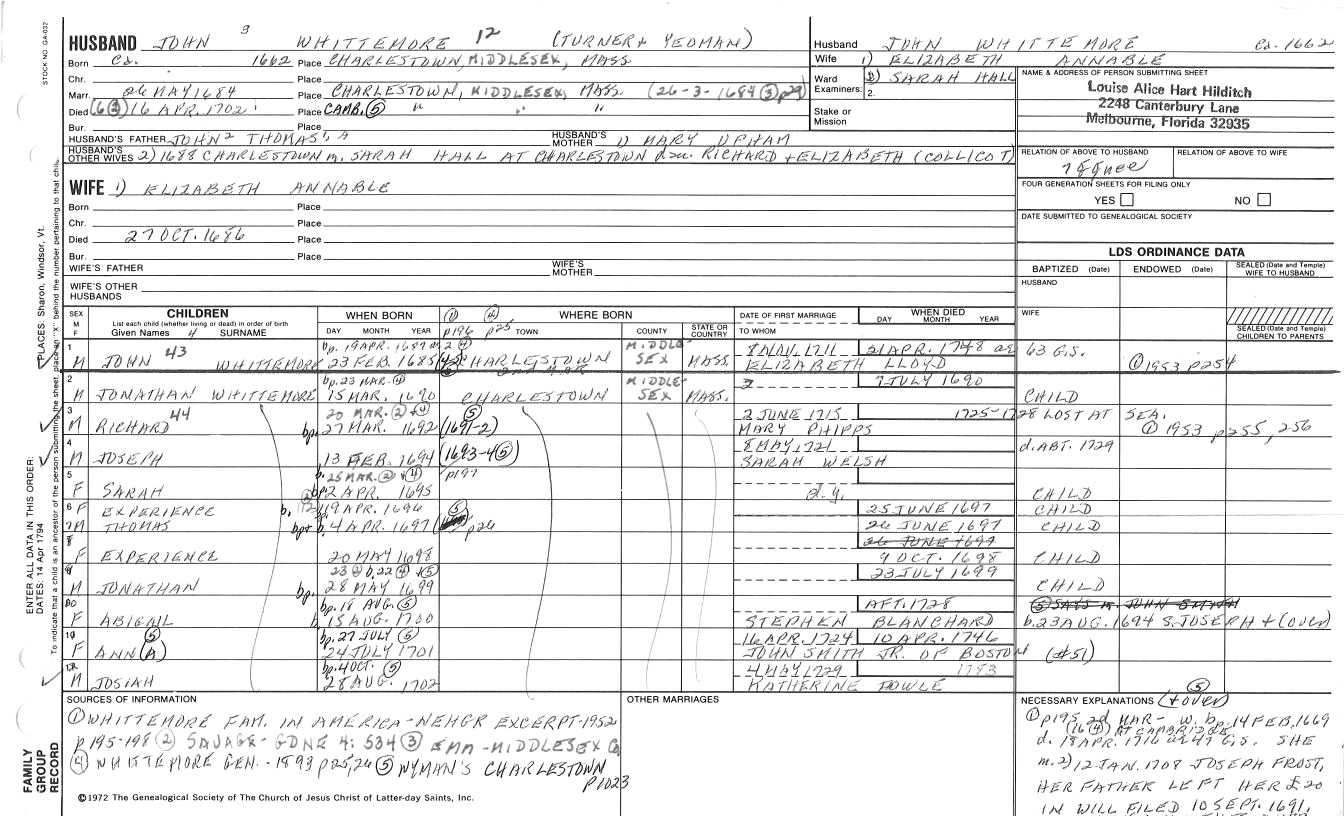 STOCK NO. GA-032
HUSBAND JOHN 3 WHITTEMORE 12 (TURNER + YEOMAN)
Born Ca. 1662 Place CHARLESTOWN, MIDDLESEX, MASS
Chr. Place
Marr. 26 MAY 1684 Place CHARLESTOWN, MIDDLESEX, MASS. (26-3-1684 ③ p29)
Died (63) 16 APR. 1702 Place CAMB. ⑤ " " "
Bur. Place
HUSBAND'S FATHER JOHN 2 THOMAS 1, A HUSBAND'S MOTHER 1) MARY UPHAM
HUSBAND'S OTHER WIVES 2) 1688 CHARLESTOWN m. SARAH HALL AT CHARLESTOWN dau. RICHARD + ELIZABETH (COLLICOT)
Husband JOHN WHITTEMORE Ca. 1662
Wife 1) ELIZABETH ANNABLE
Ward Examiners: 2) SARAH HALL
2.
Stake or Mission
NAME & ADDRESS OF PERSON SUBMITTING SHEET
Louise Alice Hart Hilditch
2248 Canterbury Lane
Melbourne, Florida 32935
RELATION OF ABOVE TO HUSBAND RELATION OF ABOVE TO WIFE
FOUR GENERATION SHEETS FOR FILING ONLY
YES NO
DATE SUBMITTED TO GENEALOGICAL SOCIETY
WIFE 1) ELIZABETH ANNABLE
Born Place
Chr. Place
Died 27 OCT. 1686 Place
Bur. Place
WIFE'S FATHER WIFE'S MOTHER
WIFE'S OTHER HUSBANDS
LDS ORDINANCE DATA
BAPTIZED (Date) ENDOWED (Date) SEALED (Date and Temple) WIFE TO HUSBAND
HUSBAND
WIFE
SEALED (Date and Temple) CHILDREN TO PARENTS
SEX M F CHILDREN List each child (whether living or dead) in order of birth Given Names 4 SURNAME
WHEN BORN DAY MONTH YEAR ① p196 ④ p25 WHERE BORN TOWN COUNTY STATE OR COUNTRY
DATE OF FIRST MARRIAGE TO WHOM WHEN DIED DAY MONTH YEAR
1 M JOHN 43 WHITTEMORE bp. 19 APR. 1687 23 FEB. 1685 CHARLESTOWN MIDDLESEX MASS. 8 NOV. 1711 ELIZABETH LLOYD 21 APR. 1748 ae 63 G.S. ① 1953 p254
2 M JONATHAN WHITTEMORE bp. 23 MAR. ④ 15 MAR. 1690 CHARLESTOWN MIDDLESEX MASS. 7 JULY 1690 CHILD
3 M RICHARD 44 20 MAR. ② + ④ bp. 27 MAR. 1692 (1691-2) ⑤ 2 JUNE 1715 MARY PHIPPS 1725-1728 LOST AT SEA. ① 1953 p255, 256
4 M JOSEPH 13 FEB. 1694 (1693-4 ⑤) 8 MAY, 1721 SARAH WELSH d. ABT. 1729
5 F SARAH b. 25 MAR. ② + ④ p197 bp. 2 APR. 1695 d.y. CHILD
6 F EXPERIENCE b. 19 APR. 1696 25 JUNE 1697 CHILD
7 M THOMAS b. 4 APR. 1697 ⑤ p26 26 JUNE 1697 CHILD
26 JUNE 1697
F EXPERIENCE 20 MAY 1698 9 OCT. 1698 CHILD
M JONATHAN 23 ② b. 22 ④ + ⑤ bp. 28 MAY 1699 23 JULY 1699 CHILD
10 F ABIGAIL bp. 18 AUG. ⑤ b. 15 AUG. 1700 STEPHEN BLANCHARD AFT. 1728 ⑤ SAYS m. JOHN SMITH b. 23 AUG. 1694 S. JOSEPH + (over)
F ANN (A) ⑤ bp. 27 JULY ⑤ 24 JULY 1701 16 APR. 1724 JOHN SMITH JR. OF BOSTON 10 APR. 1746 (#51)
12 M JOSIAH bp. 4 OCT. ⑤ 28 AUG. 1702 4 MAY 1729 KATHERINE TOWLE 1783
SOURCES OF INFORMATION
① WHITTEMORE FAM. IN AMERICA - NEHGR EXCERPT-1952
p195-198 ② SAVAGE - GDNE 4: 534 ③ EMA - MIDDLESEX Co
④ WHITTEMORE GEN. - 1893 p25,26 ⑤ WYMAN'S CHARLESTOWN
p1023
OTHER MARRIAGES
NECESSARY EXPLANATIONS ⑤ (+ over)
① p195 2d MAR - W. bp. 14 FEB, 1669
(16 ④) AT CAMBRIDGE
d. 18 APR. 1716 ae 47 G.S. SHE
m. 2) 12 JAN. 1708 JOSEPH FROST,
HER FATHER LEFT HER £20
IN WILL FILED 10 SEPT. 1691,
©1972 The Genealogical Society of The Church of Jesus Christ of Latter-day Saints, Inc.
FAMILY GROUP RECORD
ENTER ALL DATA IN THIS ORDER:
DATES: 14 Apr 1794
PLACES: Sharon, Windsor, Vt.
To indicate that a child is an ancestor of the person submitting the sheet, place an "X" behind the number pertaining to that child.